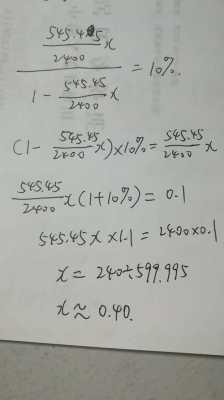 545.45/2400 x / (1 - 545.45/2400 x) = 10%.
(1 - 545.45/2400 x) × 10% = 545.45/2400 x
545.45/2400 x (1 + 10%) = 0.1
545.45x × 1.1 = 2400 × 0.1
x = 240 ÷ 599.995
x ≈ 0.40.